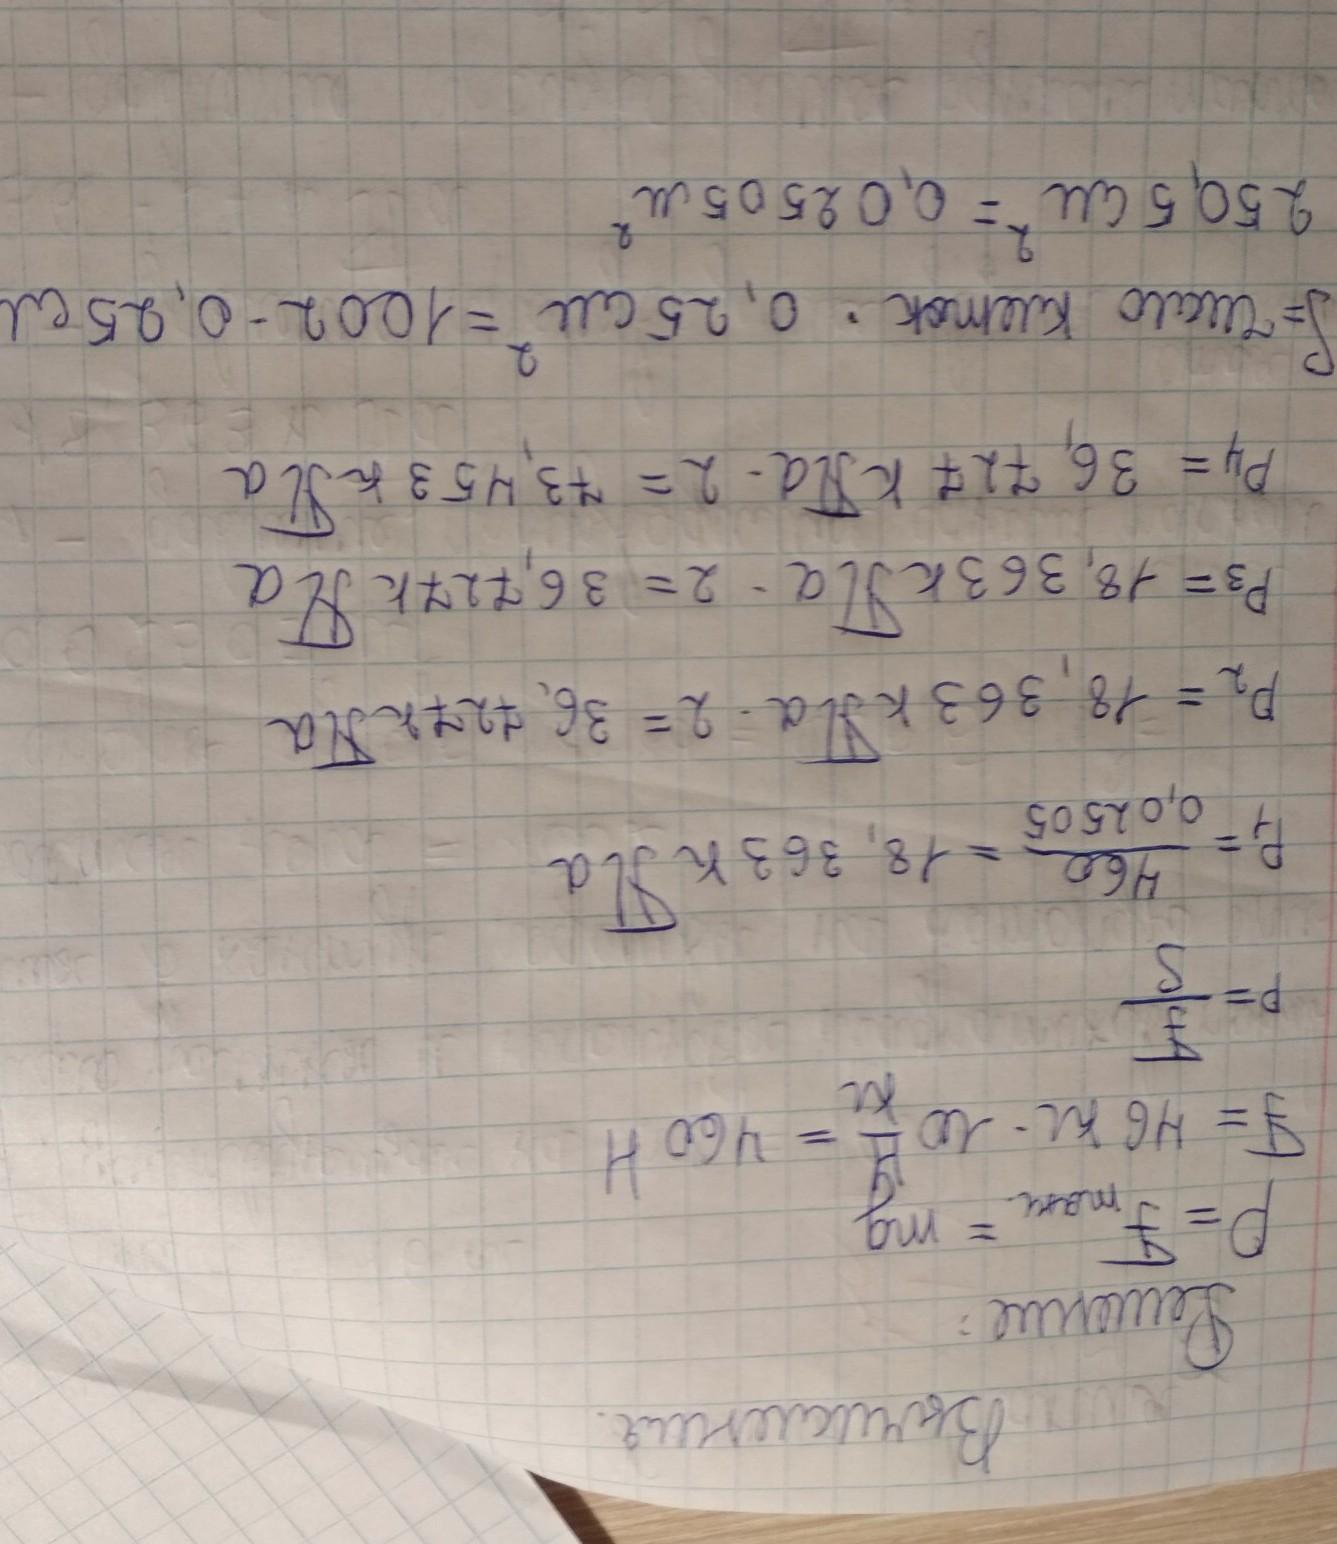 Вычисления.
Решение:
P = Fтяж. = mg
F = 46 кг · 10 Н/кг = 460 Н
P = F/S
P₁ = 460/0,02505 = 18,363 кПа
P₂ = 18,363 кПа · 2 = 36,727 кПа
P₃ = 18,363 кПа · 2 = 36,727 кПа
P₄ = 36,727 кПа · 2 = 73,453 кПа
S = число клеток · 0,25 см² = 1002 · 0,25 см
250,5 см² = 0,02505 м²